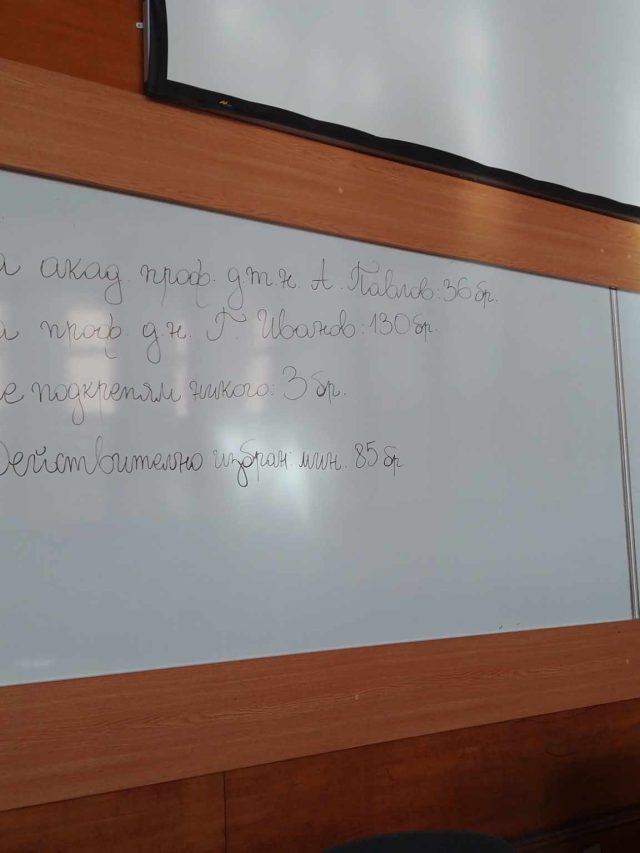 а акад. проф. дтн. А. Павлов: 36 бр.
а проф. дн. Г. Иванов: 130 бр.
е подкрепям никого: 3 бр.
Действително избран: мин. 85 бр